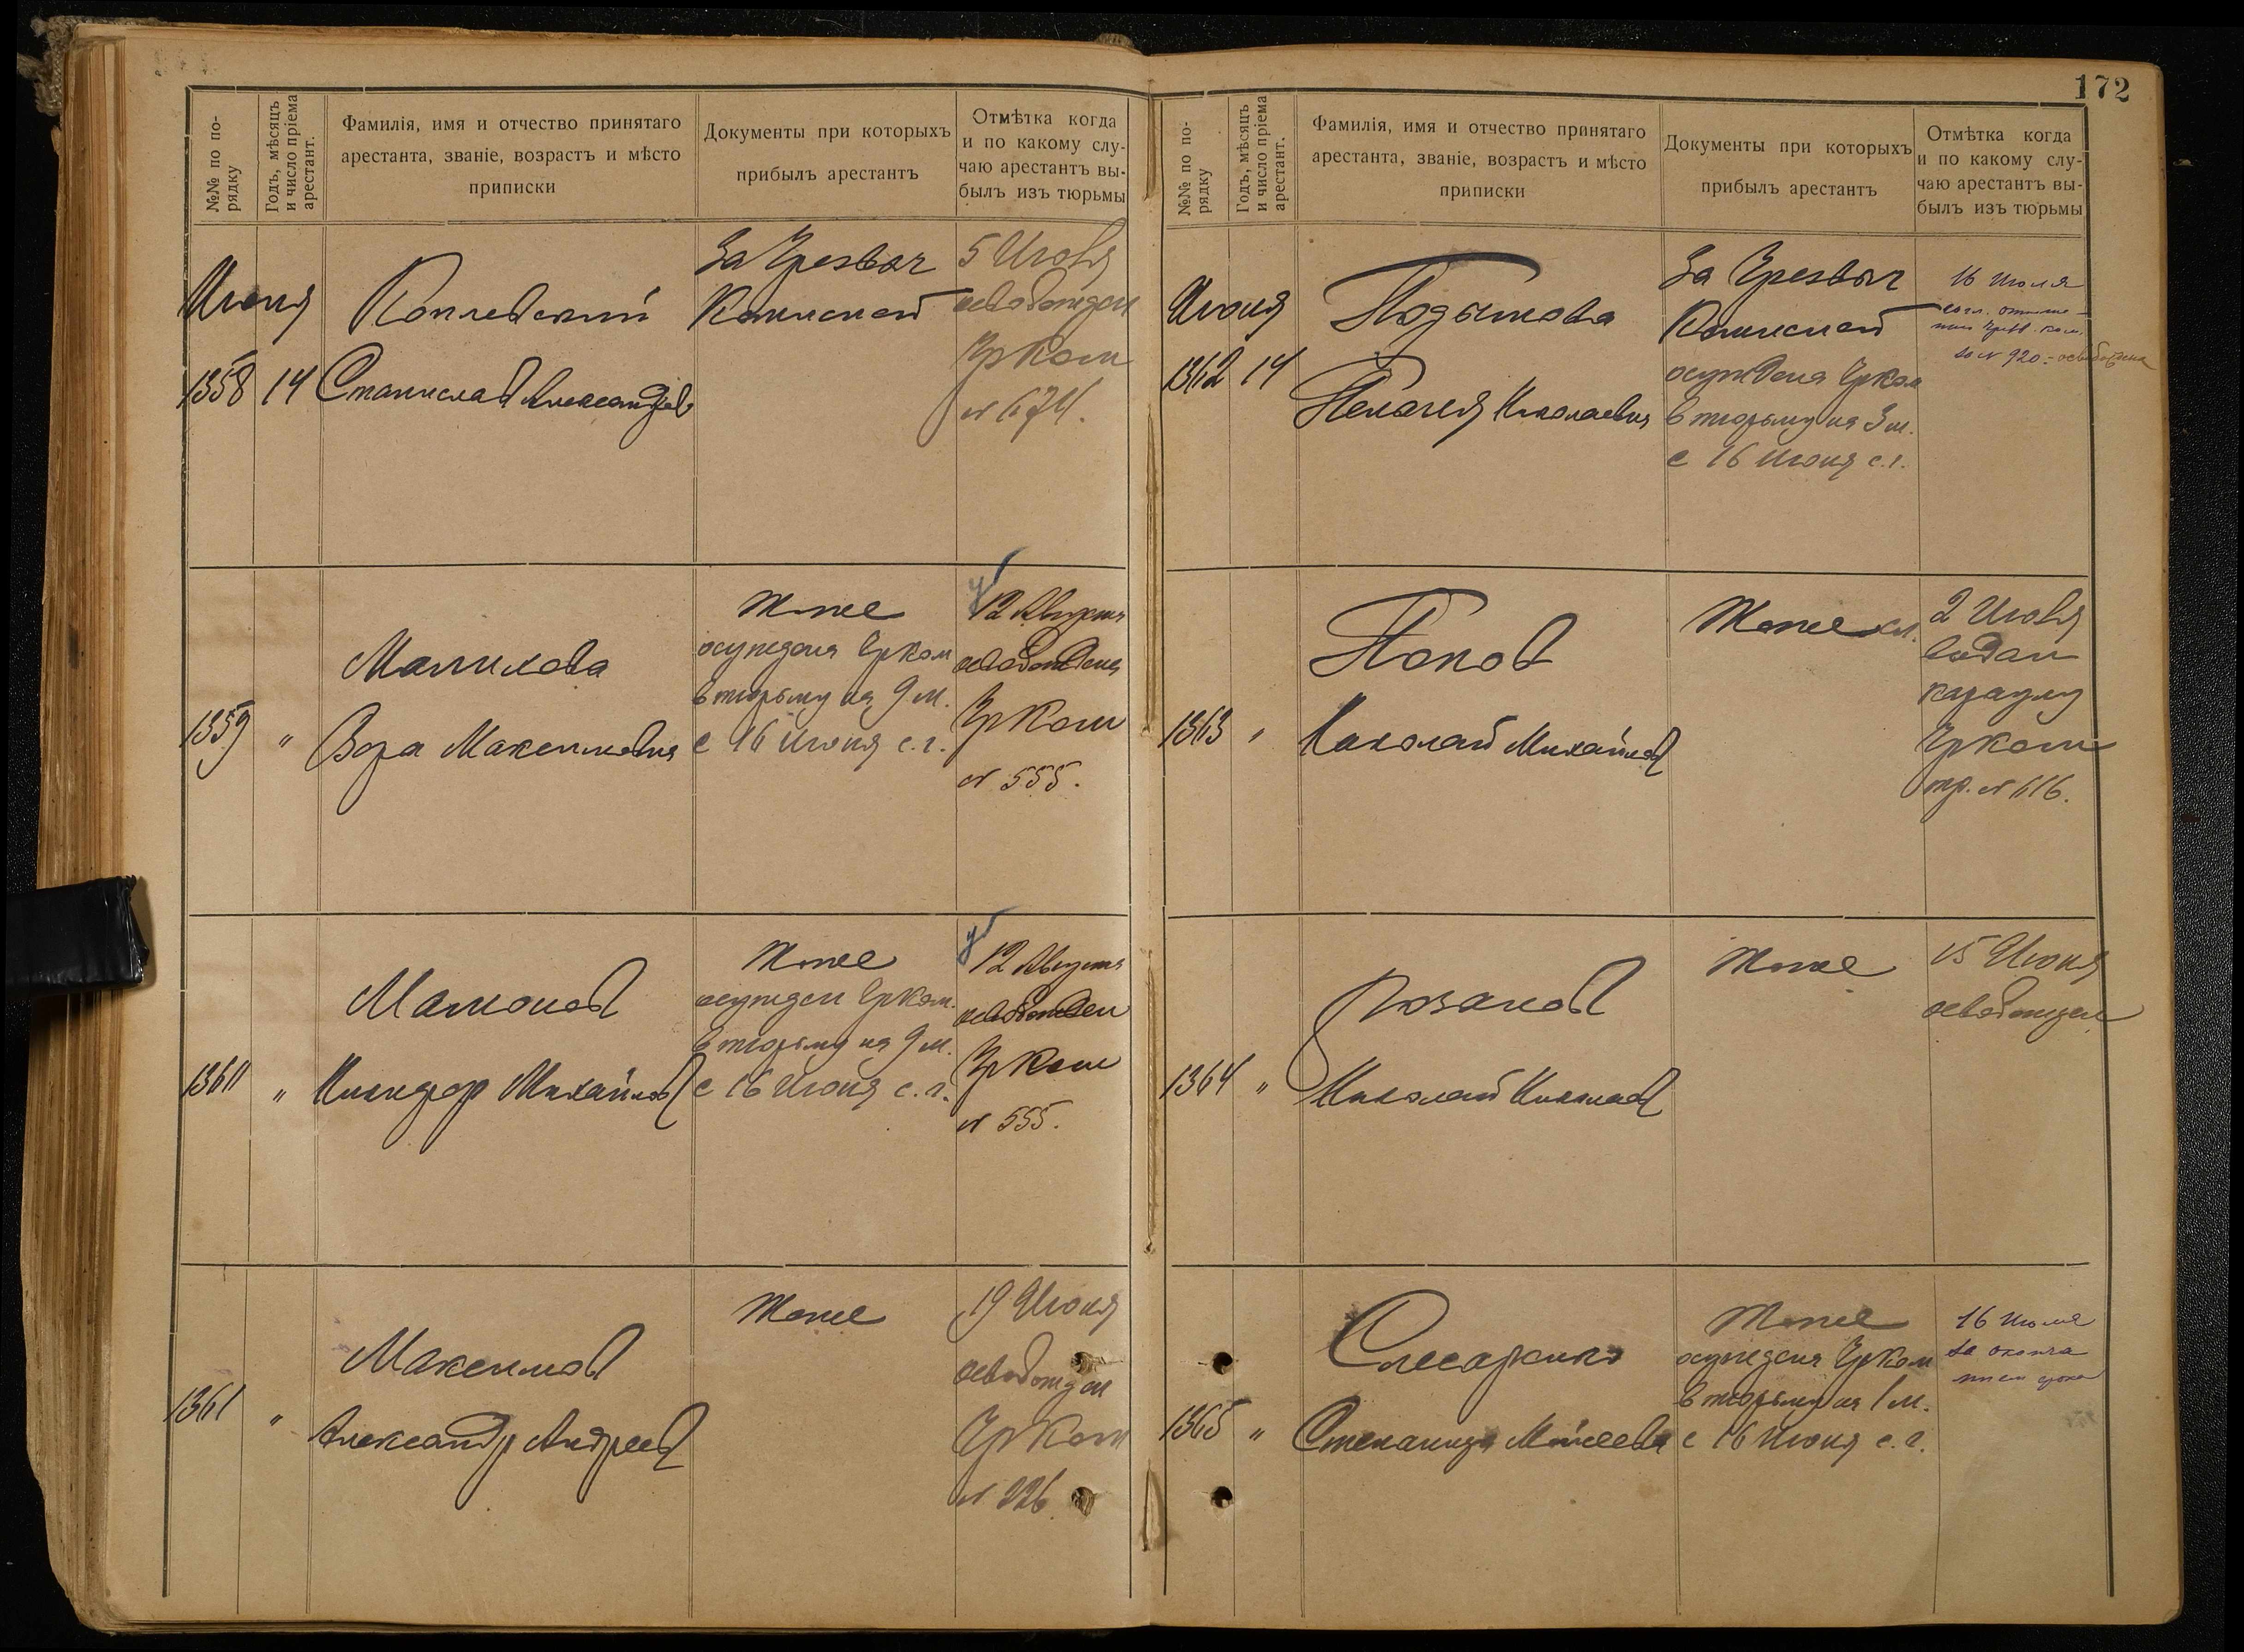 172
№№ по по-
рядку
Годъ, мѣсяцъ
и число пріема
арестант.
Фамилія, имя и отчество принятаго
арестанта, званіе, возрастъ и мѣсто
приписки
Документы при которыхъ
прибылъ арестантъ
Отмѣтка когда
и по какому слу-
чаю арестантъ вы-
былъ изъ тюрьмы
Июня
1358 14
Станислав Александров
За Чрезвыч
Комиссией
5 Июля
освобожден
ЧрКом
№ 674.
1359 "
Вера Максимовна
тоже
осуждена ЧрКом
в тюрьму на 9 м.
с 16 Июня с.г.
12 Августа
освобождена
ЧрКом
№ 555.
1360 "
Мамонов
Никифор Михайлов
тоже
осужден ЧрКом.
в тюрьму на 9 м.
с 16 Июня с.г.
12 Августа
освобожден
ЧрКом
№ 555.
1361 "
Максимов
Александр Андреев
тоже
19 Июня
освобожден
ЧрКом
№ 226
№№ по по-
рядку
Годъ, мѣсяцъ
и число пріема
арестант.
Фамилія, имя и отчество принятаго
арестанта, званіе, возрастъ и мѣсто
приписки
Документы при которыхъ
прибылъ арестантъ
Отмѣтка когда
и по какому слу-
чаю арестантъ вы-
былъ изъ тюрьмы
Июня
1362 14
Подымова
Пелагея Николаевна
За Чрезвыч
Комиссией
осуждена ЧрКом
в тюрьму на 3 м.
с 16 Июня с.г.
16 Июля
согл. отноше-
нии Чрезв. ком.
за № 920 - освобождена
1363 "
Попов
Николай Михайлов
тоже
2 Июля
выдан
караулу
ЧрКом
тр. № 616.
1364 "
Рюзанов
Николай Николаев
тоже
15 Июня
освобожден
1365 "
Слесаренко
Степанида Моисеева
тоже
осуждена ЧрКом
в тюрьму на 1 м.
с 16 Июня с.г.
16 Июля
за оконча
нием срока